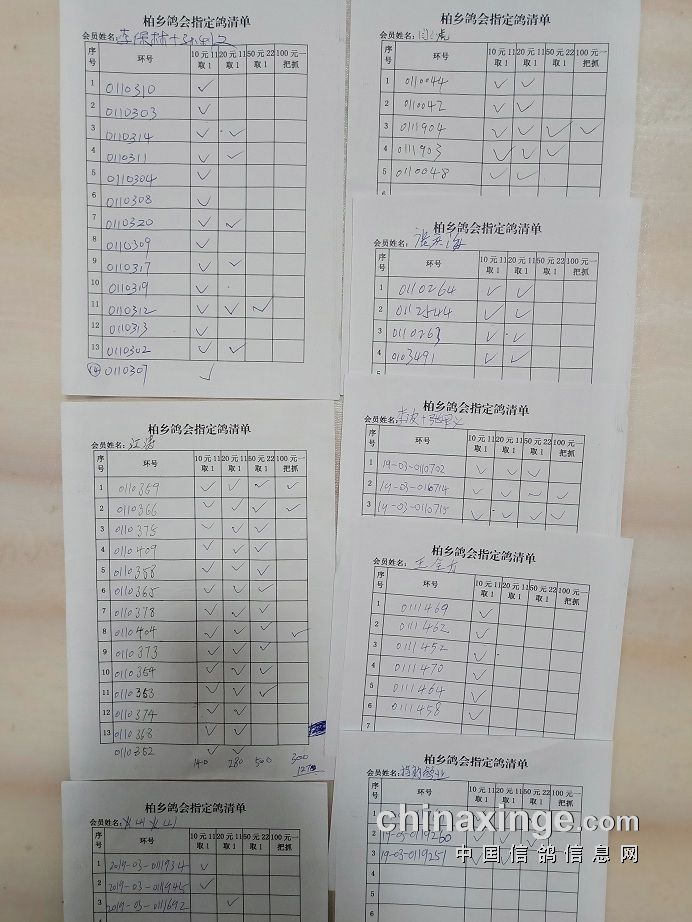 柏乡鸽会指定鸽清单
会员姓名:
序号 环号 10元11取1 20元11取1 50元22取1 100元一把抓
1 0110310 ✓
2 0110303 ✓
3 0110314 ✓ ✓
4 0110311 ✓ ✓
5 0110304 ✓
6 0110308 ✓
7 0110320 ✓ ✓
8 0110309 ✓
9 0110317 ✓ ✓
10 0110319 ✓
11 0110312 ✓ ✓ ✓
12 0110313 ✓
13 0110302 ✓ ✓
⑭ 0110307 ✓
柏乡鸽会指定鸽清单
会员姓名: 江涛
序号 环号 10元11取1 20元11取1 50元22取1 100元一把抓
1 0110359 ✓ ✓ ✓ ✓
2 0110366 ✓ ✓ ✓ ✓
3 0110375 ✓ ✓ ✓
4 0110409 ✓ ✓ ✓
5 0110358 ✓ ✓ ✓
6 0110365 ✓ ✓ ✓
7 0110378 ✓ ✓ ✓
8 0110404 ✓ ✓ ✓ ✓
9 0110373 ✓ ✓ ✓
10 0110354 ✓ ✓ ✓
11 0110363 ✓ ✓ ✓
12 0110374 ✓ ✓
13 0110368 ✓ ✓
0110352 ✓ ✓
140 280 500 300
柏乡鸽会指定鸽清单
会员姓名:
序号 环号 10元11取1 20元11取1 50元22取1 100元一把抓
1 2019-03-0111934 ✓
2 2019-03-0111945 ✓
3 2019-03-0111692 ✓
柏乡鸽会指定鸽清单
会员姓名:
序号 环号 10元11取1 20元11取1 50元22取1 100元一把抓
1 0110044 ✓ ✓
2 0110042 ✓ ✓
3 0111904 ✓ ✓ ✓ ✓
4 0111903 ✓ ✓ ✓
5 0110048 ✓ ✓
6
柏乡鸽会指定鸽清单
会员姓名:
序号 环号 10元11取1 20元11取1 50元22取1 100元一把抓
1 0110264 ✓ ✓
2 0112544 ✓ ✓
3 0110263 ✓ ✓
4 0103491 ✓ ✓
柏乡鸽会指定鸽清单
会员姓名:
序号 环号 10元11取1 20元11取1 50元22取1 100元一把抓
1 19-03-0110702 ✓ ✓ ✓
2 19-03-0110714 ✓ ✓ ✓ ✓
3 19-03-0110715 ✓ ✓ ✓ ✓
柏乡鸽会指定鸽清单
会员姓名:
序号 环号 10元11取1 20元11取1 50元22取1 100元一把抓
1 0111469 ✓
2 0111462 ✓
3 0111452 ✓
4 0111470 ✓
5 0111464 ✓
6 0111458 ✓
7
柏乡鸽会指定鸽清单
会员姓名:
序号 环号 10元11取1 20元11取1 50元22取1 100元一把抓
1
2 19-03-0119260
3 19-03-0119251
4
5
6
chinaxinge.com
中国信鸽信息网